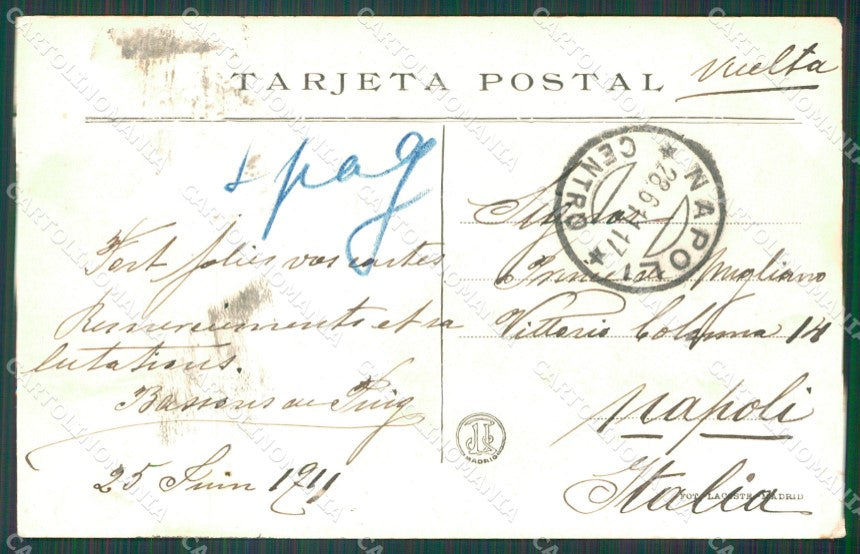 TARJETA POSTAL
vuelta
+ pag
Fort jolies vos cartes
Remerciements et sa
lutations.
Bassons de Puig
25 Juin 1911
NAPOLI
CENTRO
28.6.11.17
Signor
Migliano
Vittorio Colonna 14
Napoli
Italia
MADRID
FOT. LACOSTE-MADRID
CARTOLINOMANIA